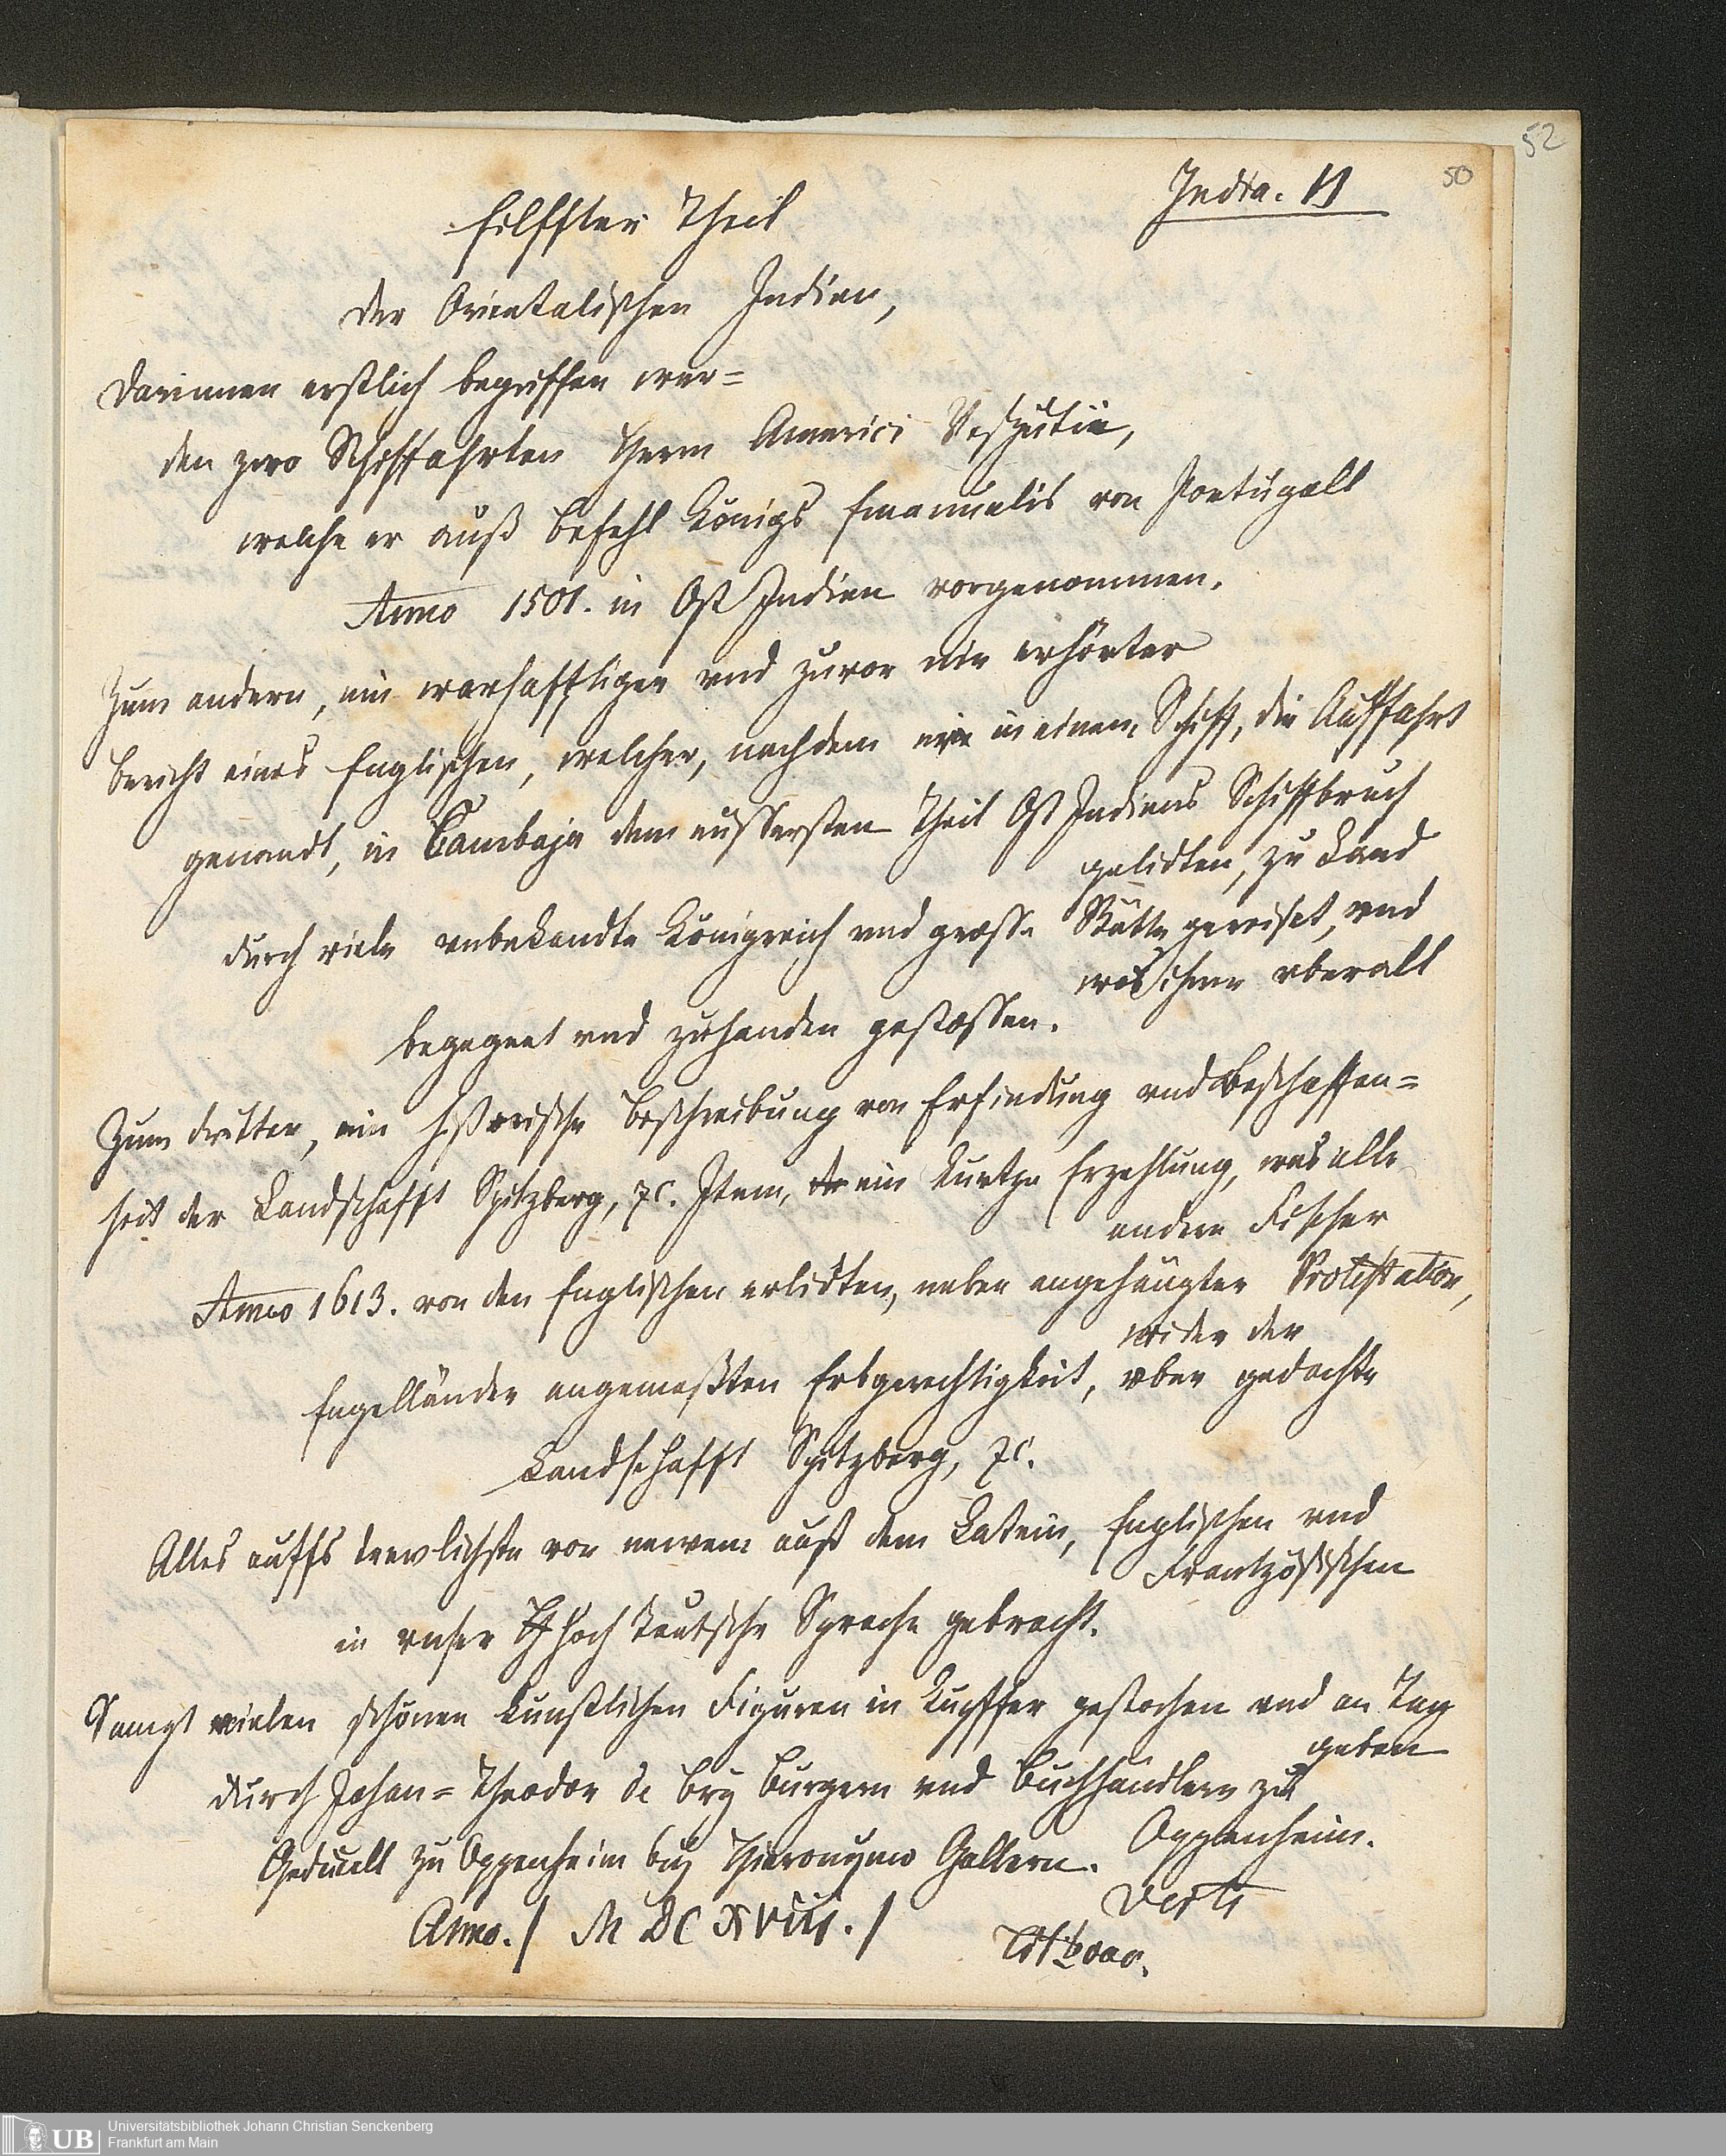 52
50
India. 11
Eilffter Theil
der Orientalischen Indien,
Darinnen erstlich begriffen wer=
den zwo Schiffahrten Herrn Americi Vesputii,
welche er auß Befehl Königs Emanuelis von Portugall
Anno 1501. in Ost Indien vorgenommen.
Zum andern, ein warhafftiger vnd zuvor nie erhörter
Bericht eines Englischen, welcher, nachdem er in einem Schiff, die Auffahrt
genandt, in Cambaja dem eussersten Theil Ost Indiens Schiffbruch
gelidten, zu Land
durch viele vnbekandte Königreich vnd grosse Stätte gereiset, vnd
was ihme vberall
begegnet vnd zuhanden gestossen.
Zum dritten, ein historische Beschreibung von Erfindung vnd Beschaffen=
heit der Landschafft Spitzberg, ꝛc. Item, ein kurtze Erzehlung, was alle
andere Fischer
Anno 1613. von den Englischen erlidten, neben angehängter Protestation,
wider der
Engelländer angemaßten Erbgerechtigkeit, vber gedachte
Landschafft Spitzberg, ꝛc.
Alles auffs trewlichste von newem auß dem Latein, Englischen vnd
Frantzösischen
in vnser Hoch Teutsche Sprache gebracht.
Sampt vielen schönen künstlichen Figuren in Kupffer gestochen vnd an Tag
geben
durch Johan= Theodor de Bry Burgern vnd Buchhändlern zu
Oppenheim.
Gedruckt zu Oppenheim bey Hieronymo Gallern.
Anno. / M DC XVIII. /
verte
UB
Universitätsbibliothek Johann Christian Senckenberg
Frankfurt am Main